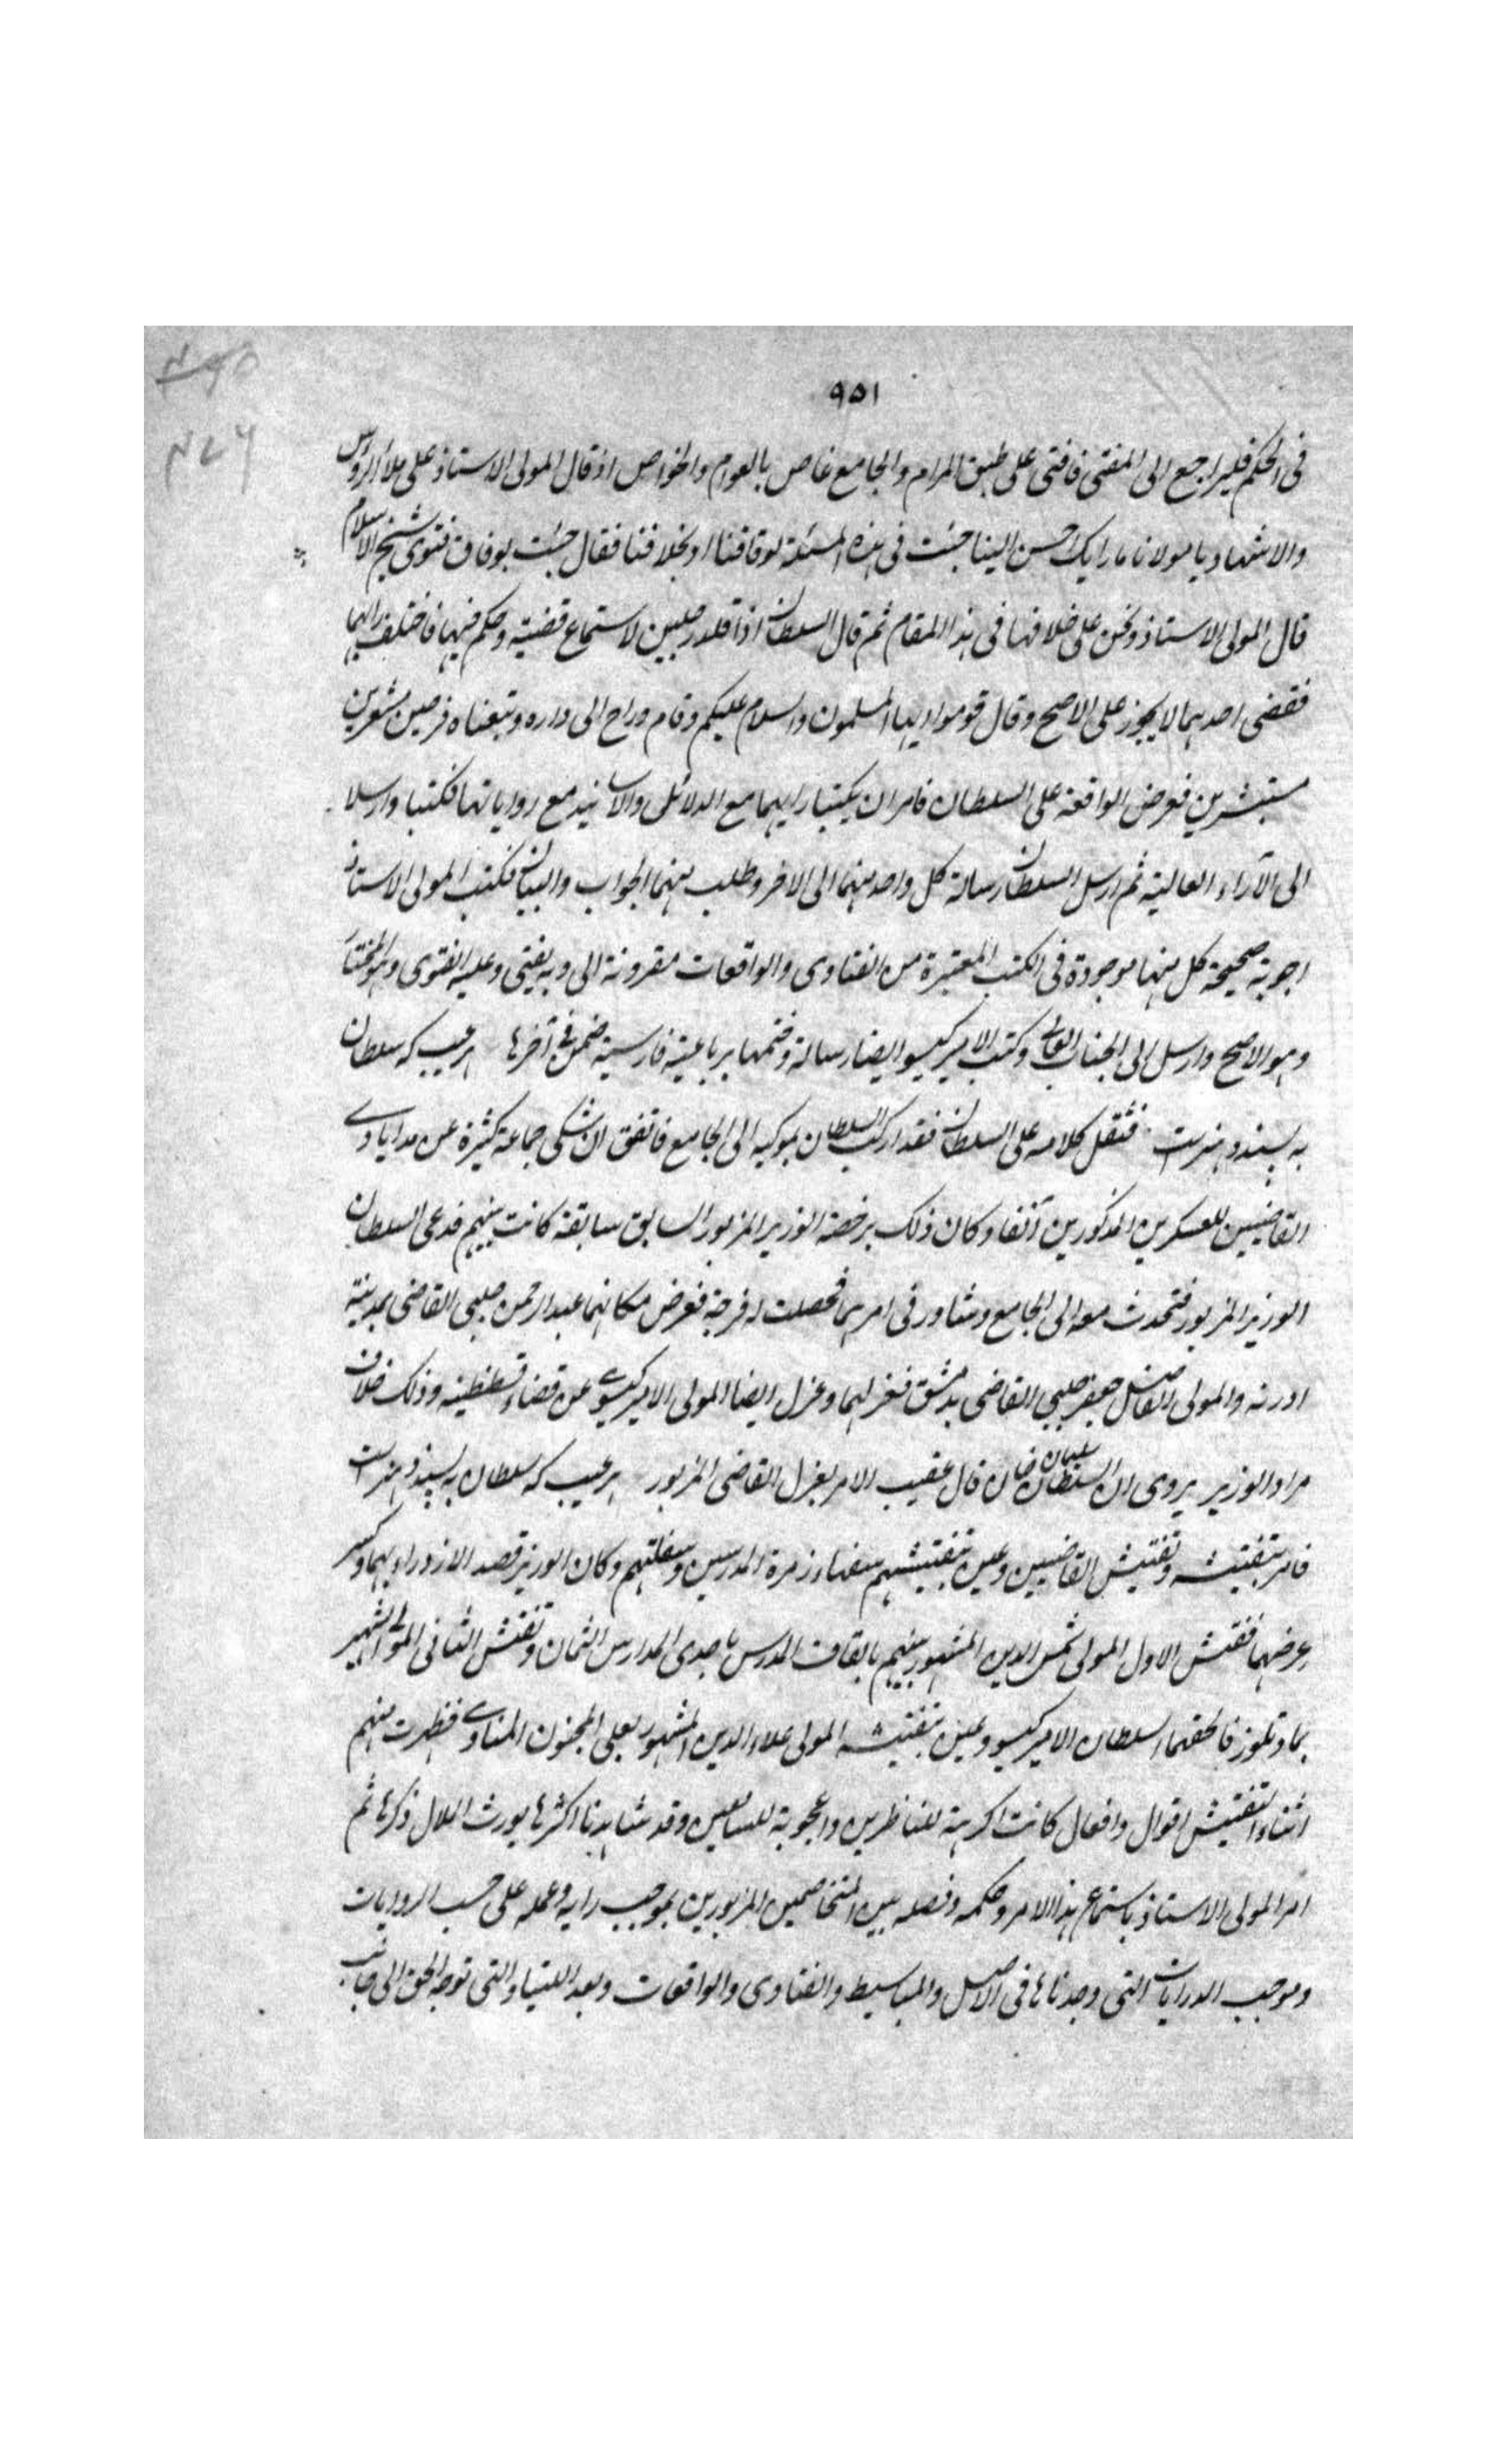 ٩٥١
فى الحكم فليراجع الى المفتى فافتى على طبق المرام والجامع غاص بالعوام والخواص اذ قال المولى الاستاذ على ملأ الروس
والاشهاد يا مولانا ما رايك احسن الينا جئت فى هذه المسئلة لوفاقنا او بخلافنا فقال جئت بوفاق فتوى شيخ الاسلام
قال المولى الاستاذ ونحن على خلافها فى هذا المقام ثم قال السلطان اذا قلد رجلين لاستماع قضية وحكم فيها فاختلف رايهما
فقضى احدهما لا يجوز على الاصح وقال قوموا ايها المسلمون والسلام عليكم وقام وراح الى داره وتبعناه فرحين
مستبشرين فعرض الواقعة على السلطان فامر ان يكتبا رايهما مع الدلائل والاسانيد مع رواياتها فكتبا وارسلا
الى الآراء العالية ثم ارسل السلطان رسالة كل واحد منهما الى الاخر وطلب منهما الجواب والبيان فكتب المولى الاستاذ
اجوبة صحيحة كل منها موجودة فى الكتب المعتبرة من الفتاوى والواقعات مقرونة الى وبه يفتى وعليه الفتوى وهو المختار
وهو الاصح وارسل الى الجناب العالى وكتب الامير كيسو ايضا رسالة وختمها برباعية فارسية فى آخرها هر عيب كه سلطان
به پسندد هنرست فثقل كلامه على السلطان فقد اركب السلطان بموكبه الى الجامع فاتفق ان شكى جماعة كثيرة عن
القاضيين للعسكرين المذكورين آنفا وكان ذلك برخصة الوزير المزبور السابق سابقة كانت بينهم فدعى السلطان
الوزير المزبور فتحدث معه الى الجامع وشاور فى امرهما فحصلت له فرجة فعرض مكانهما عبد الرحمن چلبى القاضى بمدينة
ادرنه والمولى الفاضل جعفر چلبى القاضى بدمشق فعزلهما وعزل ايضا المولى الامير كيسوى عن قضاء قسطنطينيه وذلك خلاف
مراد الوزير يروى ان السلطان سليمان خان قال عقيب الامر بعزل القاضى المزبور هر عيب كه سلطان به پسندد هنرست
فامر بتفتيشه وتفتيش القاضيين وعين بتفتيشهم سفهاء زمرة المدرسين وسفلتهم وكان الوزير قصد الازدراء بهما وكسر
عرضهما ففتش الاول المولى شمس الدين المشهور بينهم بالقاف المدرس باحدى المدارس الثمان وتفتش الثانى المولى الشهير
فالحقهما السلطان الامير كيسو وعين بتفتيشه المولى علاء الدين المشهور بعلى المجنون المناوى فظهرت منهم
اثناء التفتيش اقوال وافعال كانت اكرهية للناظرين واعجوبة للسامعين وقد شاهدنا اكثرها يورث الملال ذكرها ثم
امر المولى الاستاذ باستماع هذا الامر وحكمه وفصله بين المتخاصمين المزبورين بموجب رايه وعمله على حسب الروايات
وموجب الدرايات التى وجدناها فى الاصل والمباسيط والفتاوى والواقعات وبعد اللتيا والتى توجه الحق الى جانب